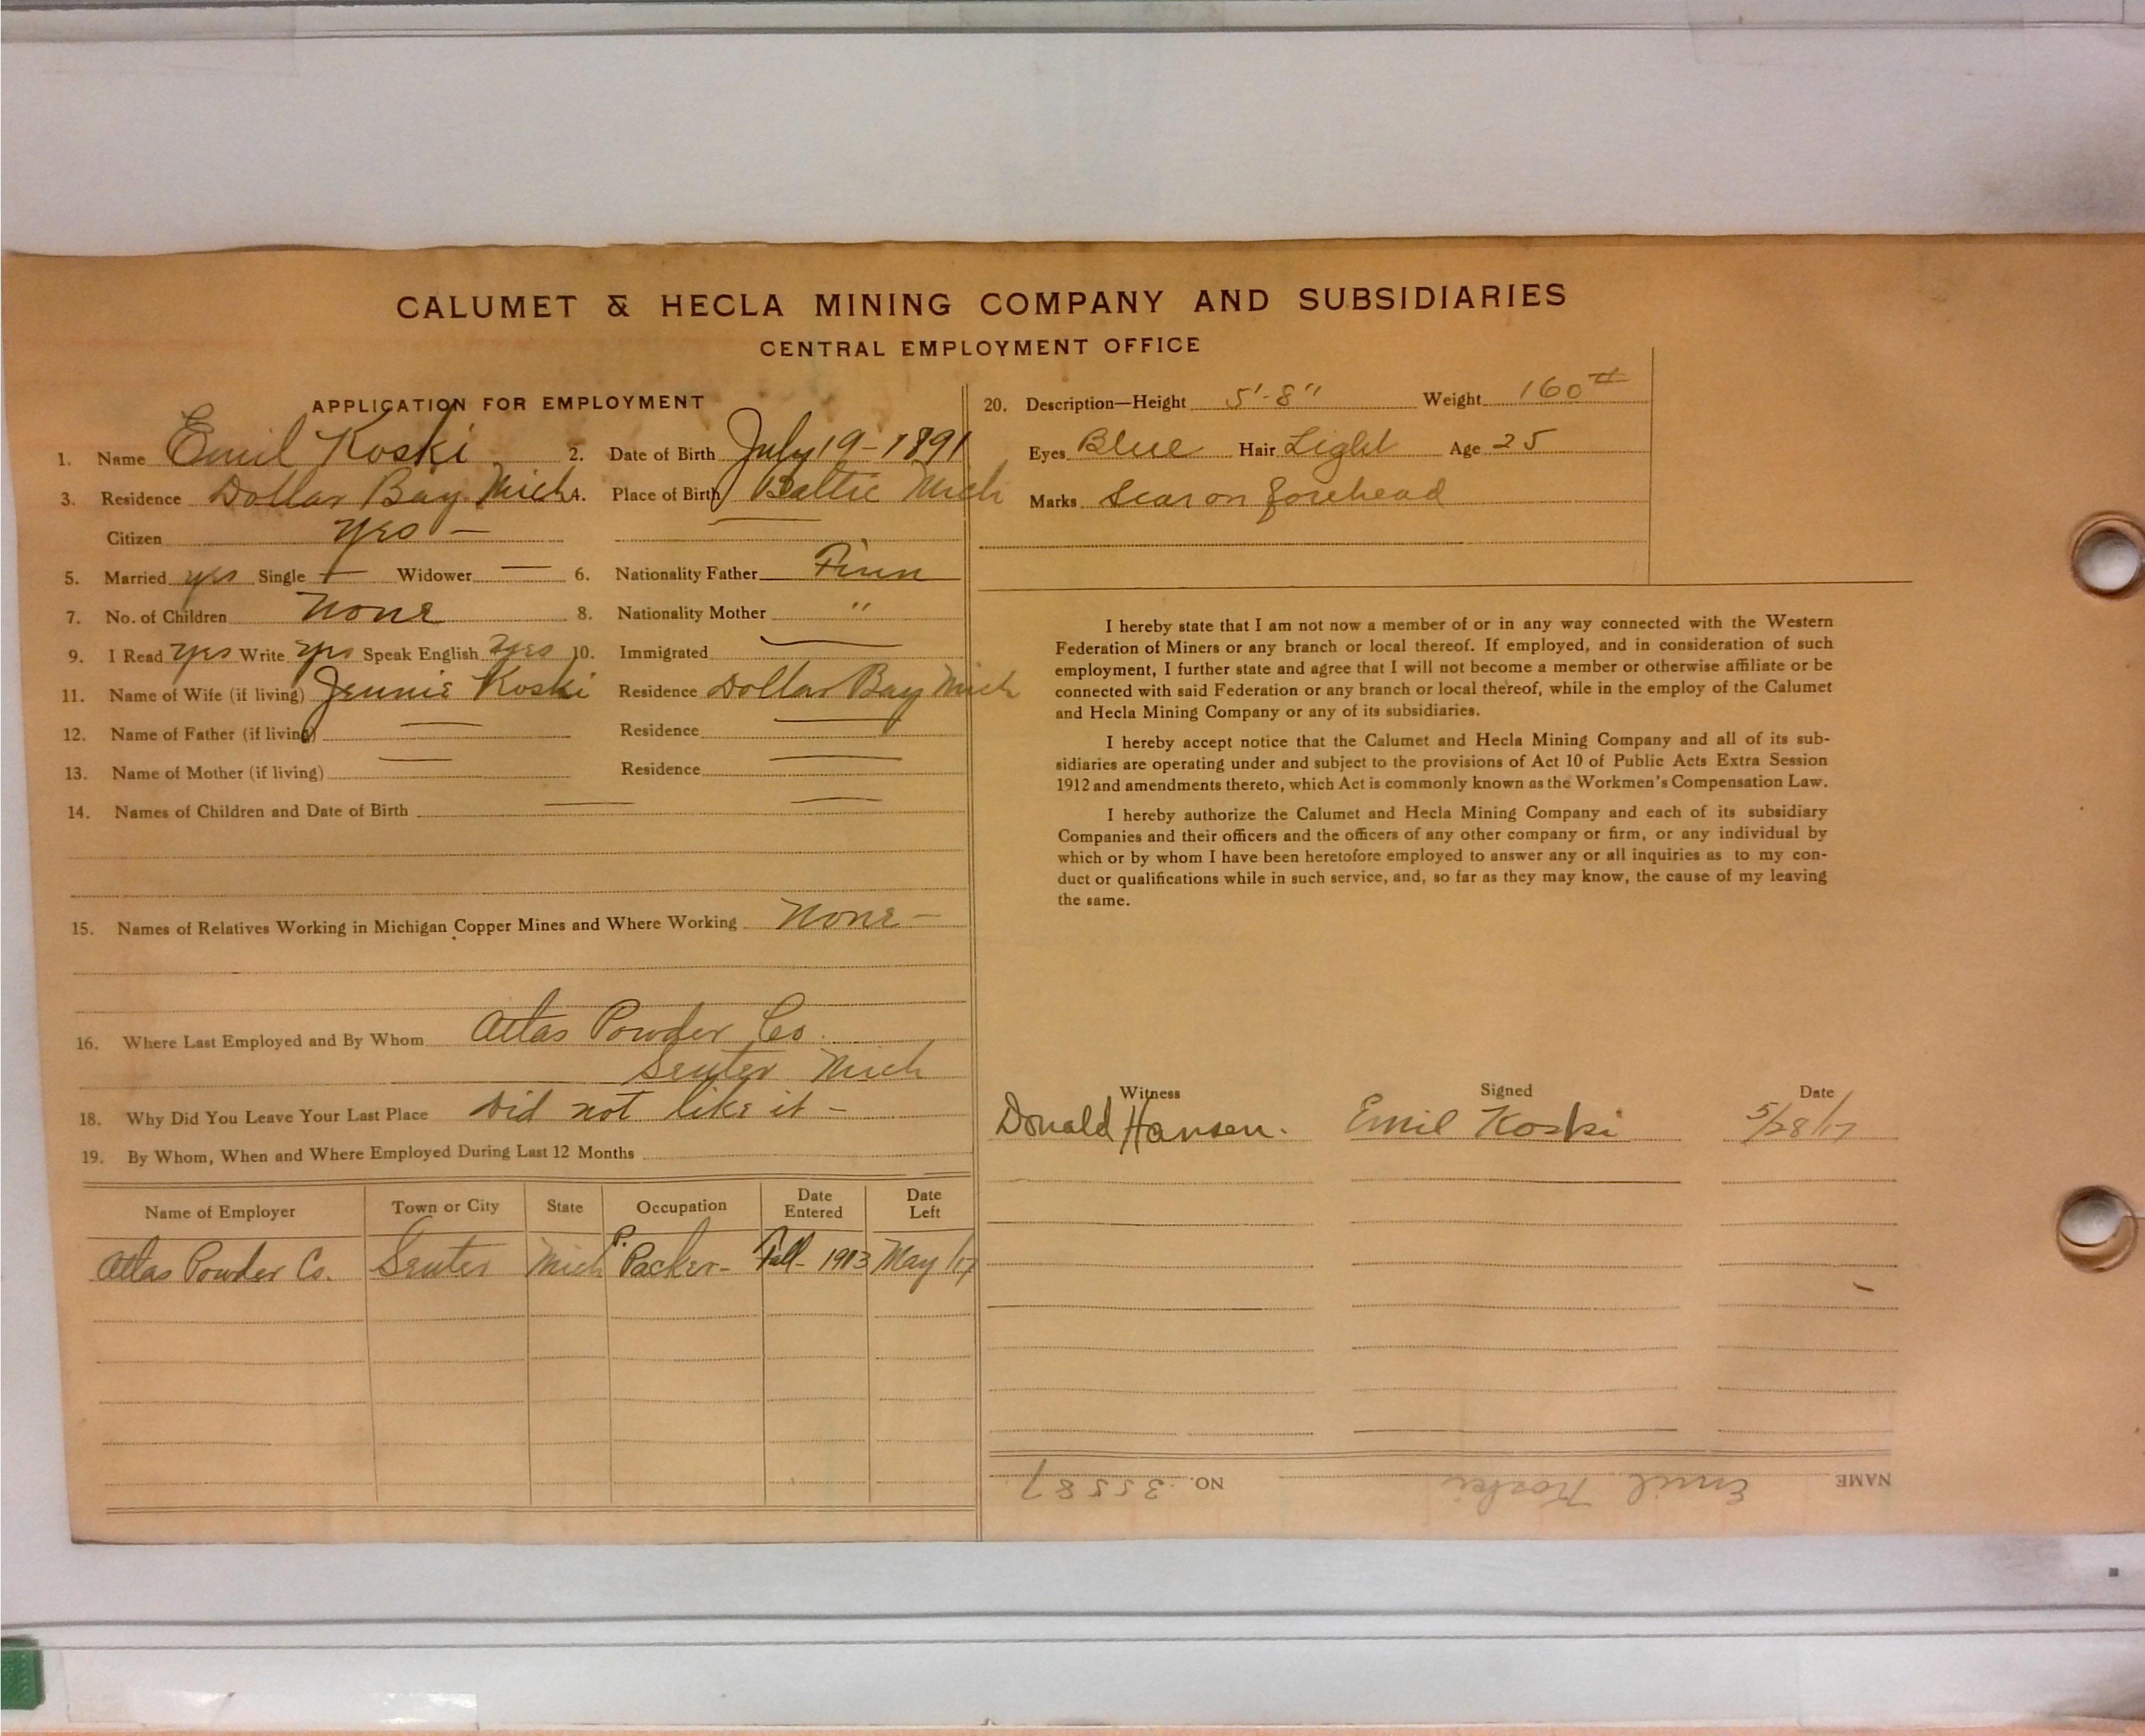 CALUMET & HECLA MINING COMPANY AND SUBSIDIARIES
CENTRAL EMPLOYMENT OFFICE
APPLICATION FOR EMPLOYMENT
1. Name Emil Koski 2. Date of Birth July 19-1891
3. Residence Dollar Bay Mich 4. Place of Birth Baltic Mich
Citizen Yes —
5. Married yes Single — Widower — 6. Nationality Father Finn
7. No. of Children None 8. Nationality Mother "
9. I Read yes Write yes Speak English yes 10. Immigrated —
11. Name of Wife (if living) Jennie Koski Residence Dollar Bay Mich
12. Name of Father (if living) — Residence —
13. Name of Mother (if living) — Residence —
14. Names of Children and Date of Birth — —
15. Names of Relatives Working in Michigan Copper Mines and Where Working None —
16. Where Last Employed and By Whom Atlas Powder Co.
Senter Mich
18. Why Did You Leave Your Last Place Did not like it —
19. By Whom, When and Where Employed During Last 12 Months
Name of Employer Town or City State Occupation Date Entered Date Left
Atlas Powder Co. Senter Mich P. Packer- Fall- 1913 May /17
20. Description—Height 5'-8" Weight 160 #
Eyes Blue Hair Light Age 25
Marks Scar on forehead
I hereby state that I am not now a member of or in any way connected with the Western
Federation of Miners or any branch or local thereof. If employed, and in consideration of such
employment, I further state and agree that I will not become a member or otherwise affiliate or be
connected with said Federation or any branch or local thereof, while in the employ of the Calumet
and Hecla Mining Company or any of its subsidiaries.
I hereby accept notice that the Calumet and Hecla Mining Company and all of its sub-
sidiaries are operating under and subject to the provisions of Act 10 of Public Acts Extra Session
1912 and amendments thereto, which Act is commonly known as the Workmen's Compensation Law.
I hereby authorize the Calumet and Hecla Mining Company and each of its subsidiary
Companies and their officers and the officers of any other company or firm, or any individual by
which or by whom I have been heretofore employed to answer any or all inquiries as to my con-
duct or qualifications while in such service, and, so far as they may know, the cause of my leaving
the same.
Witness Signed Date
Donald Hansen. Emil Koski 5/28/17
NAME Emil Koski NO. 35587